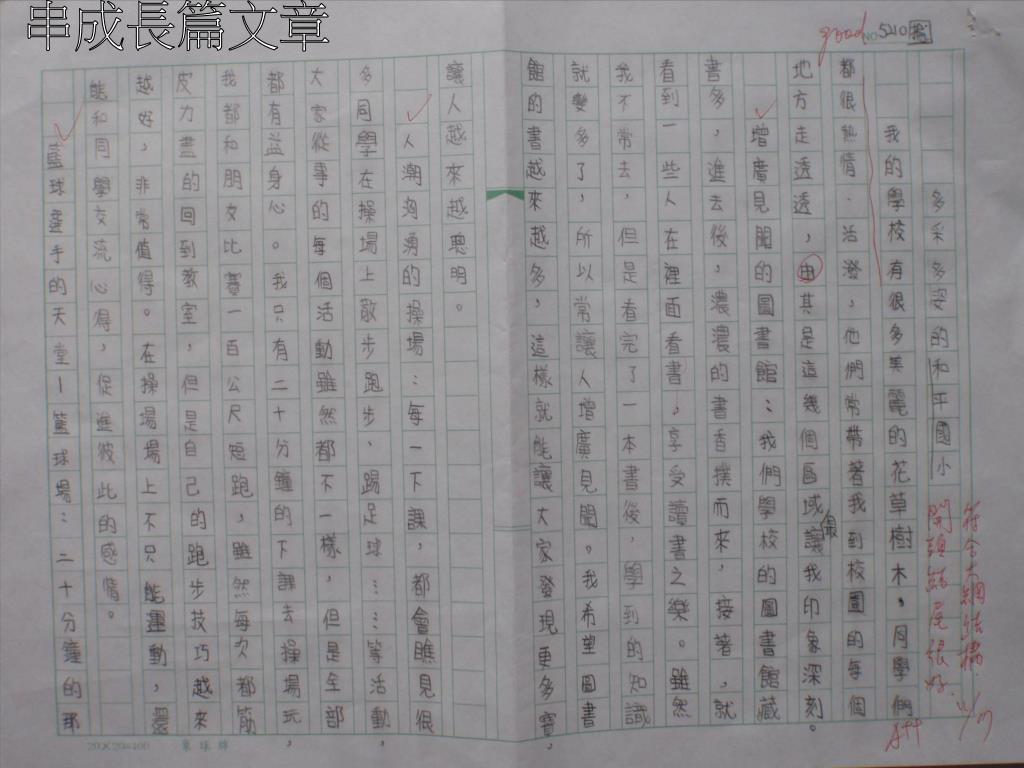 串成長篇文章
good
NO 5210
多采多姿的和平國小
我的學校有很多美麗的花草樹木，同學們
都很熱情、活潑，他們常帶著我到校園的每個
地方走透透，由其是這幾個區域讓我印象最深刻。
增廣見聞的圖書館：我們學校的圖書館藏
書多，進去後，濃濃的書香撲而來，接著，就
看到一些人在裡面看書，享受讀書之樂。雖然
我不常去，但是看完了一本書後，學到的知識
就變多了，所以常讓人增廣見聞。我希望圖書
館的書越來越多，這樣就能讓大家發現更多寶，
讓人越來越聰明。
人潮洶湧的操場：每一下課，都會瞧見很
多同學在操場上散步、跑步、踢足球……等活動，
大家從事的每個活動雖然都不一樣，但是全部
都有益身心。我只有二十分鐘的下課去操場玩，
我都和朋友比賽一百公尺短跑，雖然每次都筋
皮力盡的回到教室，但是自己的跑步技巧越來
越好，非常值得。在操場場上不只能運動，還
能和同學交流心得，促進彼此的感情。
籃球選手的天堂—籃球場：二十分鐘的那
符合大綱結構
開頭結尾很好
20X20=400